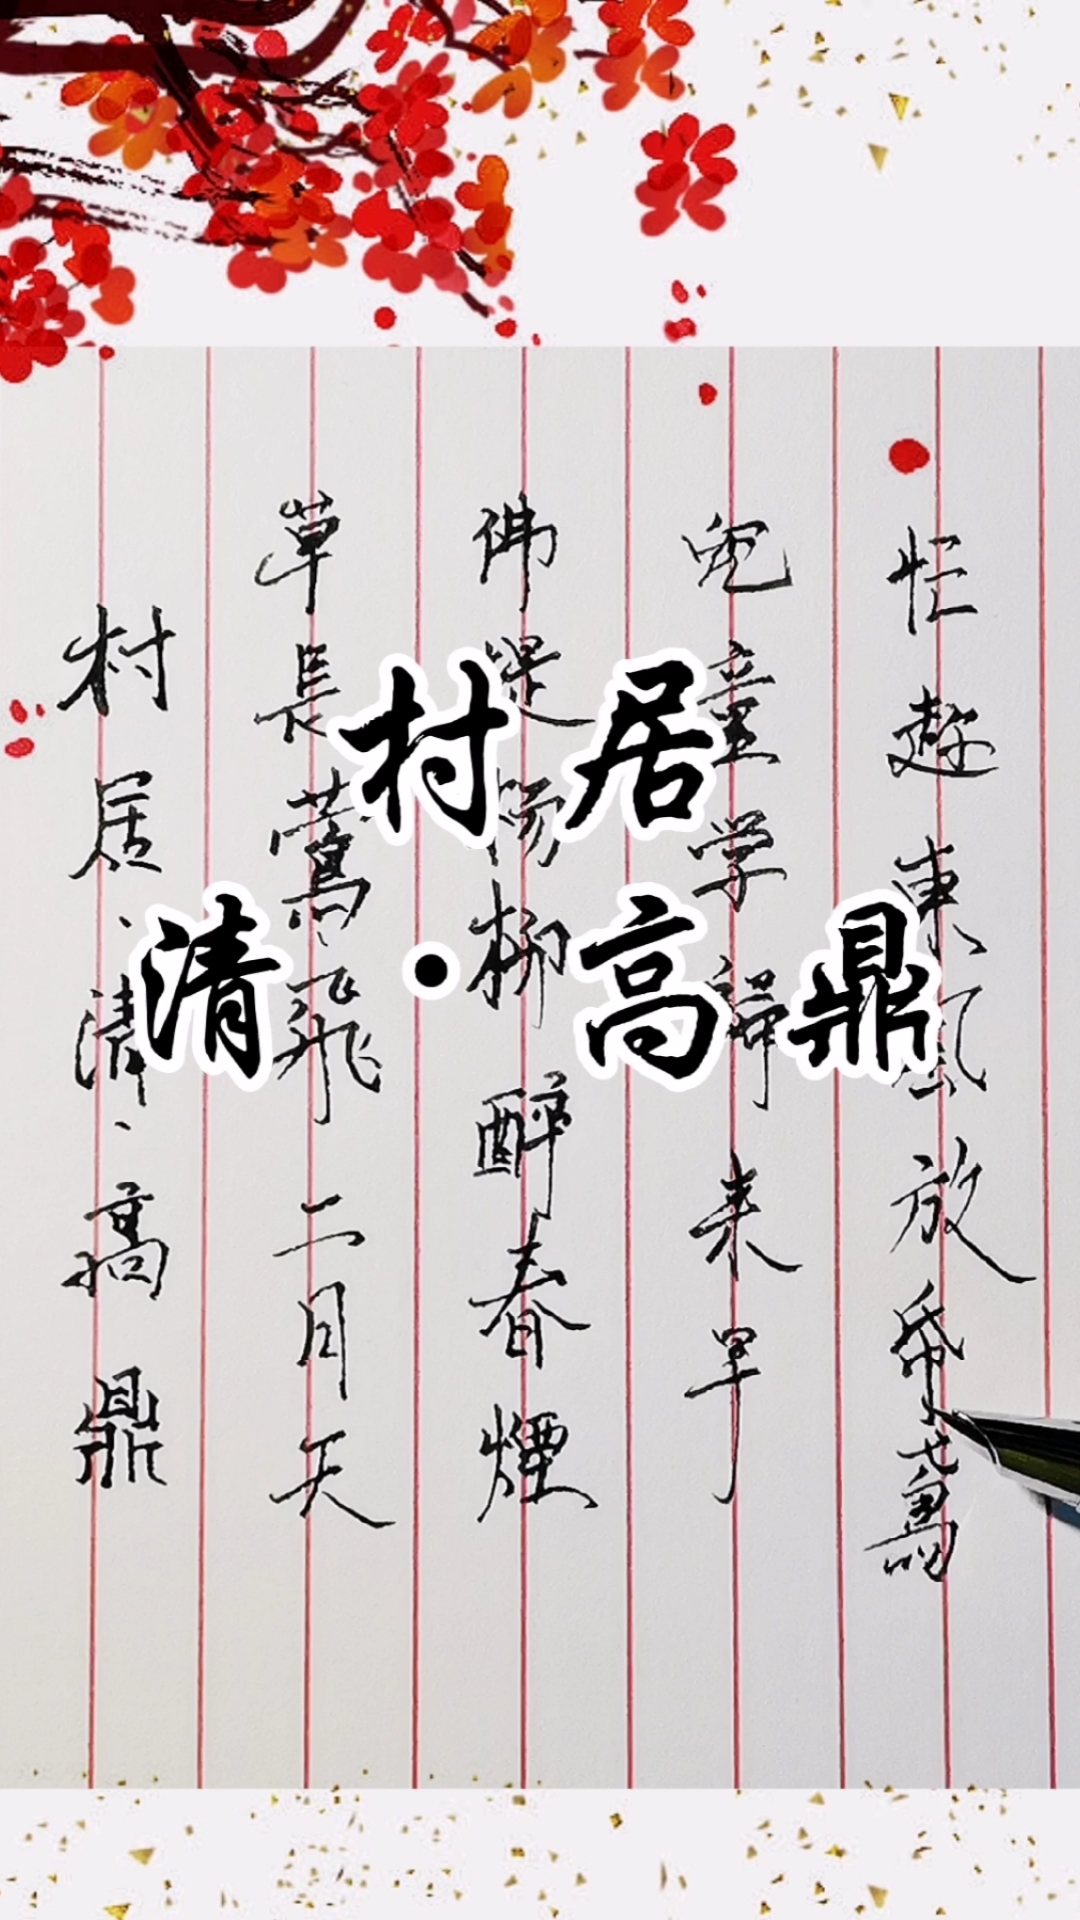 村居
清·高鼎
村居、清、高鼎
草長鶯飛二月天
佛堤楊柳醉春煙
兒童学歸来早
忙趁東風放帋鳶